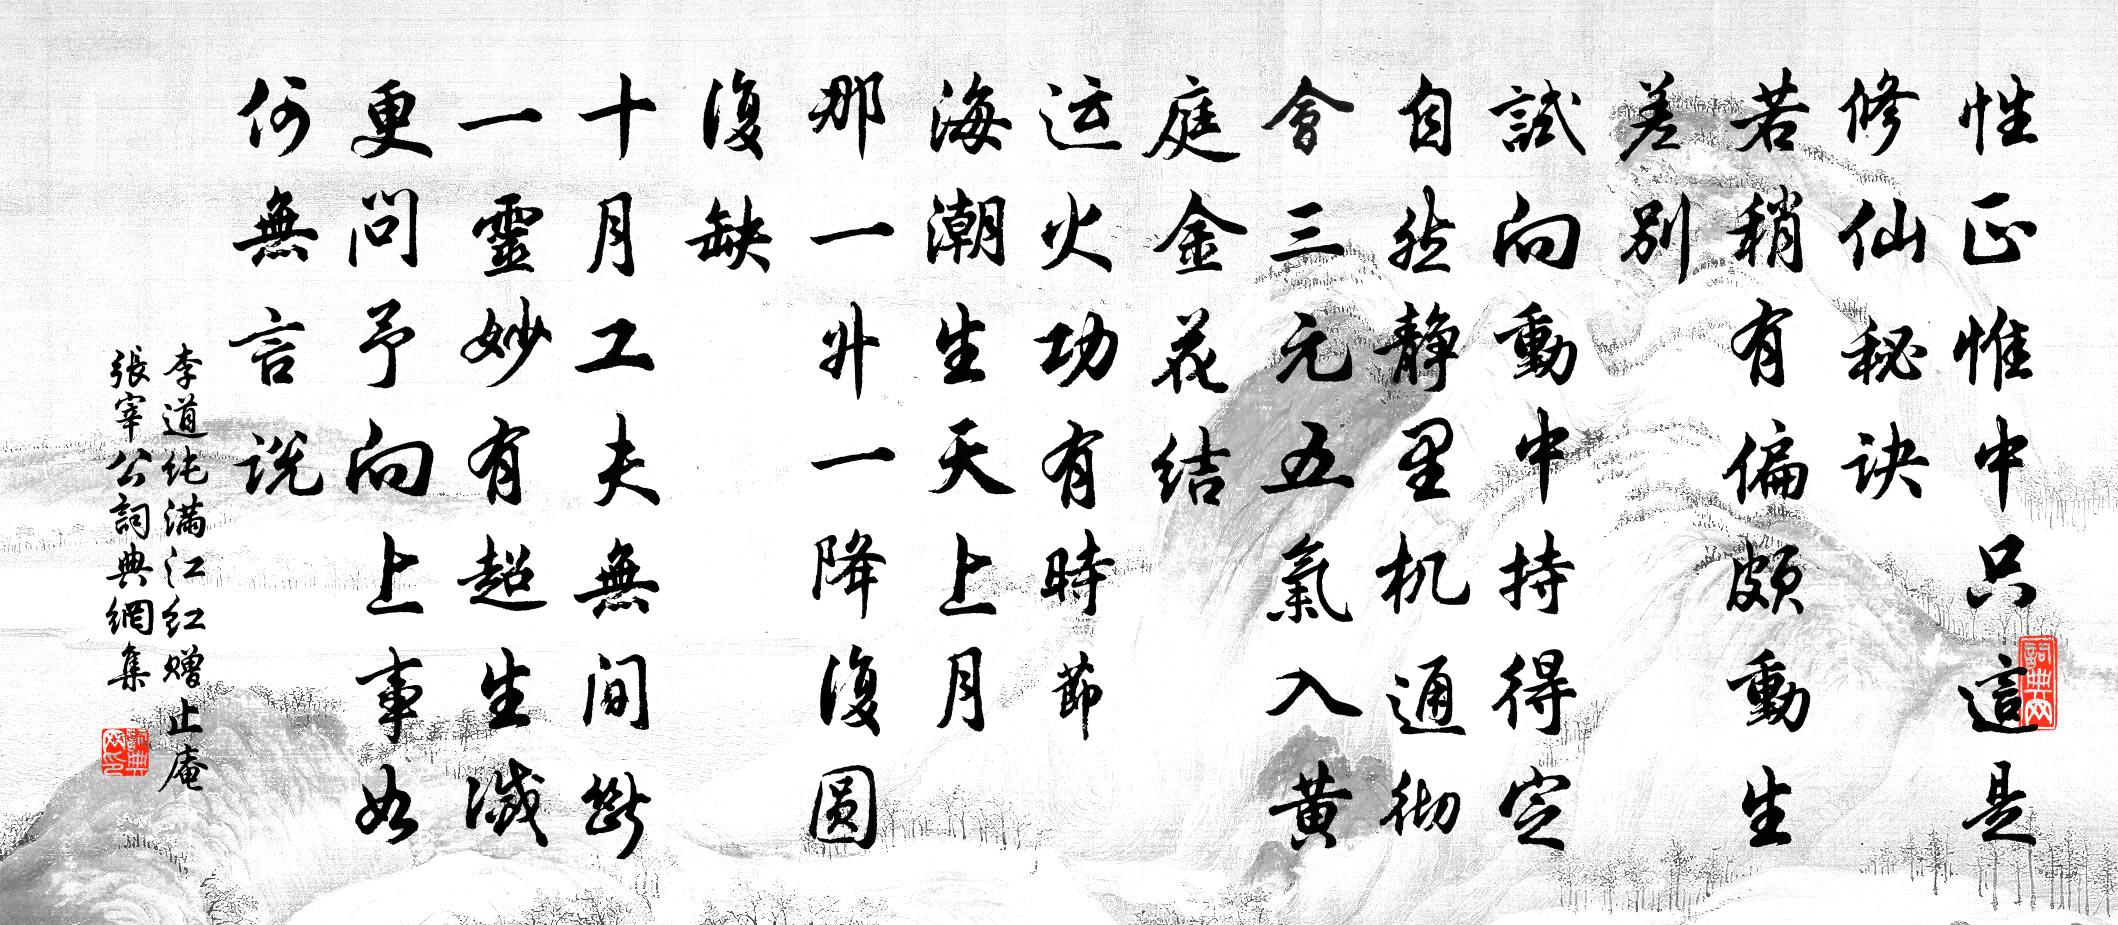 性正惟中只這是
修仙秘诀
若稍有偏颇動生
差别
試向動中持得定
自然静里机通彻
會三元五氣入黄
庭金花结
运火功有時節
海潮生天上月
那一升一降復圆
復缺
十月工夫無间断
一靈妙有超生滅
更问予向上事如
何無言说
李道纯满江红赠止庵
張宰公詞典網集
詞典网
詞典网印